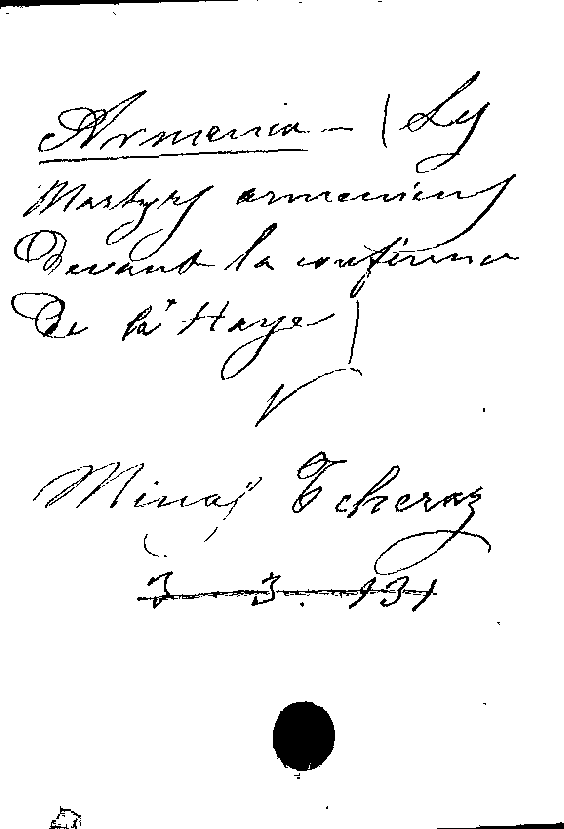 Armenia – (Les
Martyrs armeniens
devant la conférence
de la Haye)
Minas Tcheraz
3. 3. 131